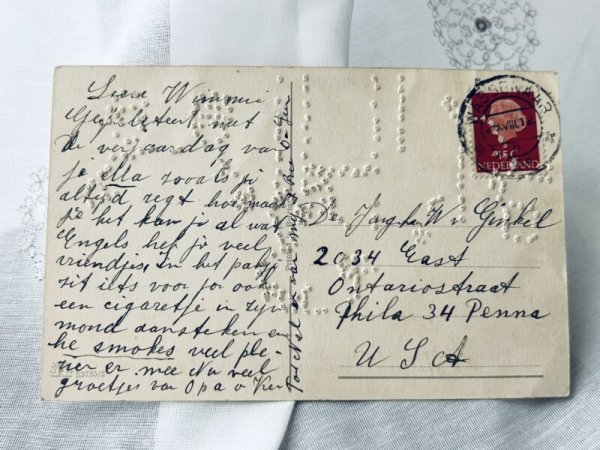 Lieve Wimmie
Gefeliciteerd met
De verjaardag van
je ella zooals jij
altijd zegt hoe gaat
je het kan je al wat
Engels heb je veel
vriendjes, in het pakje
zit iets voor jou ook
een cigaretje in zijn
mond aansteken en
he smokes veel ple-
zier er mee Nu veel
groetjes van Opa v Vier
van
De Jong
2034 East
Ontariostraat
Phila 34 Penna
U S A
15 C
NEDERLAND